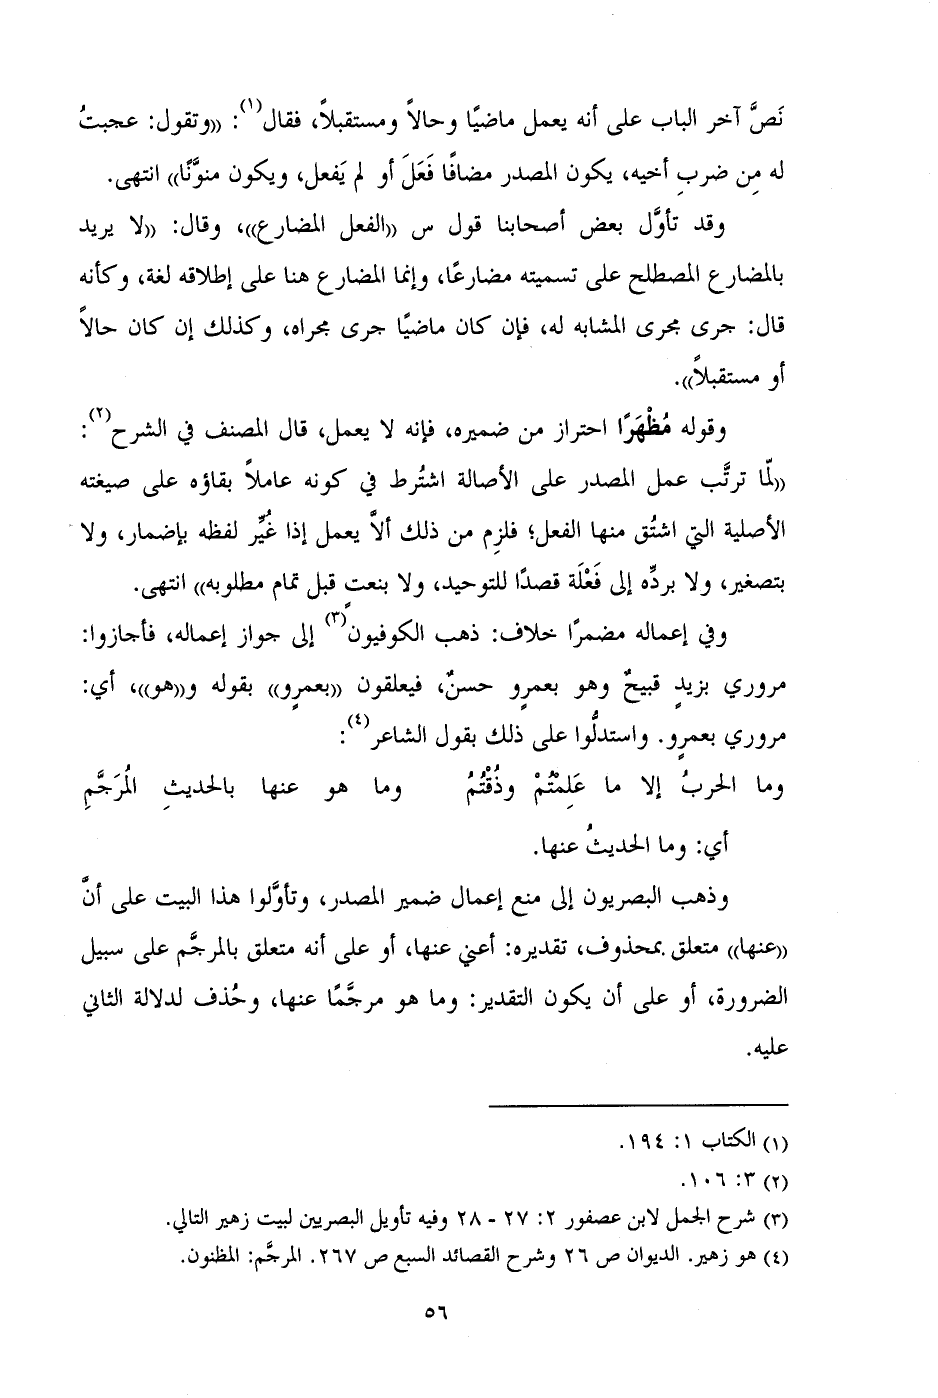 نَصَّ آخر الباب على أنه يعمل ماضيًا وحالاً ومستقبلاً، فقال(١): «وتقول: عجبتُ
له مِن ضربِ أخيه، يكون المصدر مضافًا فَعَلَ أو لم يَفعل، ويكون منوَّنًا» انتهى.
وقد تأوَّل بعض أصحابنا قول س «الفعل المضارع»، وقال: «لا يريد
بالمضارع المصطلح على تسميته مضارعًا، وإنما المضارع هنا على إطلاقه لغة، وكأنه
قال: جرى مجرى المشابه له، فإن كان ماضيًا جرى مجراه، وكذلك إن كان حالاً
أو مستقبلاً».
وقوله مُظْهَرًا احتراز من ضميره، فإنه لا يعمل، قال المصنف في الشرح(٢):
«لمّا ترتَّب عمل المصدر على الأصالة اشتُرط في كونه عاملاً بقاؤه على صيغته
الأصلية التي اشتُق منها الفعل؛ فلزِم من ذلك ألاَّ يعمل إذا غُيِّر لفظه بإضمار، ولا
بتصغير، ولا بردِّه إلى فَعْلَة قصدًا للتوحيد، ولا بنعتٍ قبل تمام مطلوبه» انتهى.
وفي إعماله مضمرًا خلاف: ذهب الكوفيون(٣) إلى جواز إعماله، فأجازوا:
مروري بزيدٍ قبيحٌ وهو بعمرٍو حسنٌ، فيعلقون «بعمرٍو» بقوله و«هو»، أي:
مروري بعمرٍو. واستدلُّوا على ذلك بقول الشاعر(٤):
وما الحربُ إلا ما عَلِمْتُمْ وذُقْتُمُ وما هو عنها بالحديثِ المُرَجَّمِ
أي: وما الحديثُ عنها.
وذهب البصريون إلى منع إعمال ضمير المصدر، وتأوَّلوا هذا البيت على أنَّ
«عنها» متعلق بمحذوف، تقديره: أعني عنها، أو على أنه متعلق بالمرجَّم على سبيل
الضرورة، أو على أن يكون التقدير: وما هو مرجَّمًا عنها، وحُذف لدلالة الثاني
عليه.
(١) الكتاب ١: ١٩٤.
(٢) ٣: ١٠٦.
(٣) شرح الجمل لابن عصفور ٢: ٢٧ - ٢٨ وفيه تأويل البصريين لبيت زهير التالي.
(٤) هو زهير. الديوان ص ٢٦ وشرح القصائد السبع ص ٢٦٧. المرجَّم: المظنون.
٥٦